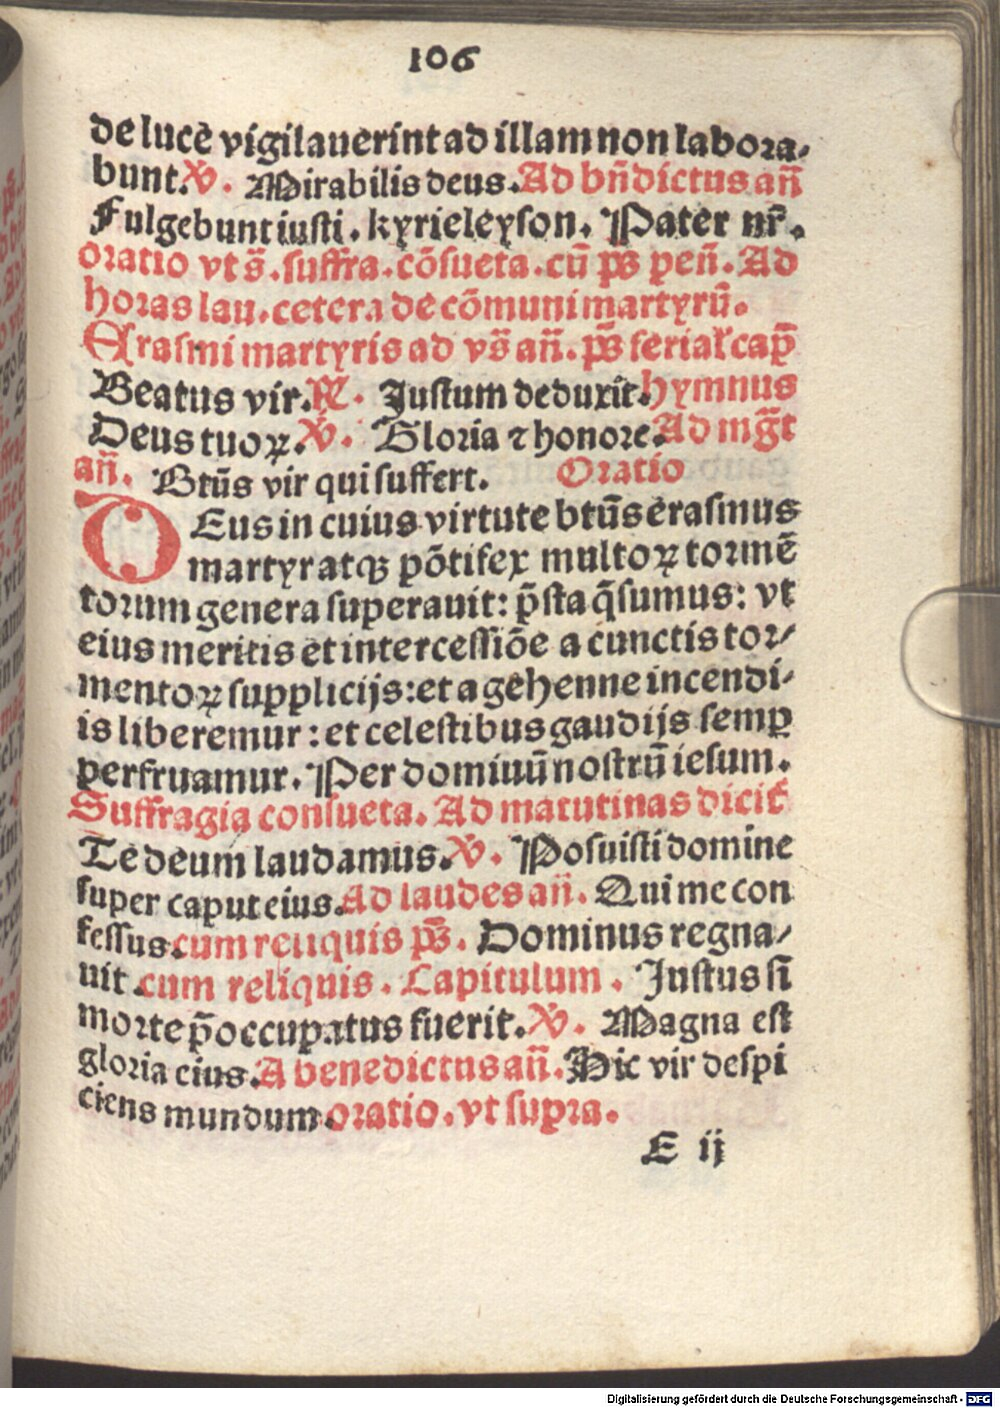 106
de lucē vigilauerint ad illam non labora⸗
bunt. ℣. Mirabilis deus. Ad bn̄dictus an̄
Fulgebunt iusti. kyrieleyson. Pater nr̄.
oratio vt s̄. suffra. cōsueta. cū ps̄ pen̄. Ad
horas lau. cetera de cōmuni martyrū.
Erasmi martyris ad vs̄ an̄. ps̄ ferial' cap̄
Beatus vir. ℟. Justum deduxit. hymnus
Deus tuoꝝ. ℣. Gloria ⁊ honore. Ad mḡt
an̄. Btūs vir qui suffert. Oratio
DEus in cuius virtute btūs erasmus
martyr atqꝫ pōtifex multoꝝ tormē
torum genera superauit: p̄sta q̄sumus: vt
eius meritis et intercessiōe a cunctis tor⸗
mentoꝝ supplicijs: et a gehenne incendi⸗
is liberemur: et celestibus gaudijs semꝑ
perfruamur. Per domiuū nostrū iesum.
Suffragia consueta. Ad matutinas dicit᷑
Te deum laudamus. ℣. Posuisti domine
super caput eius. Ad laudes an̄. Qui me con
fessus. cum reliquis ps̄. Dominus regna⸗
uit. cum reliquis. Capitulum. Justus si
morte p̄occupatus fuerit. ℣. Magna est
gloria eius. A benedictus an̄. Hic vir despi
ciens mundum. oratio. vt supra.
E ij
Digitalisierung gefördert durch die Deutsche Forschungsgemeinschaft - DFG